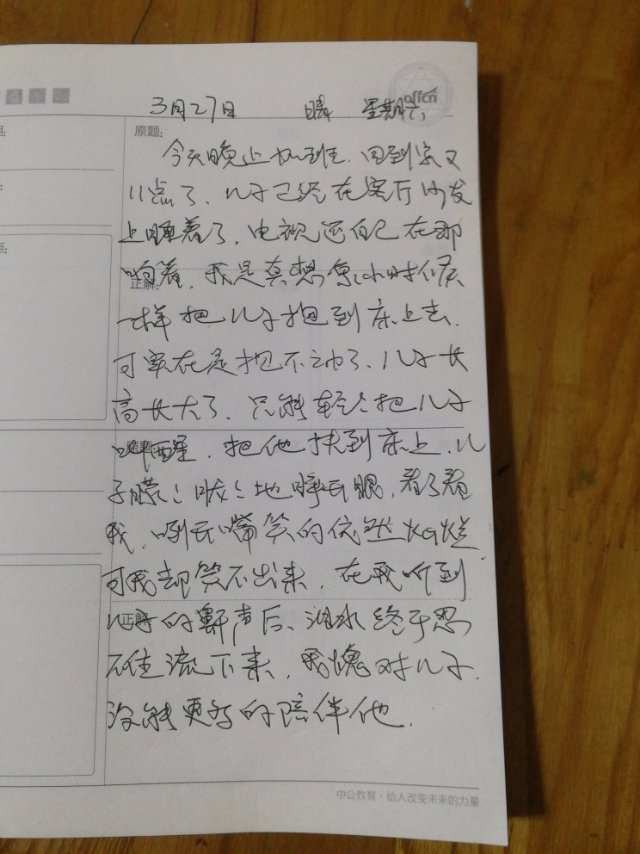 offcn
3月27日 晴 星期六
原题:
今天晚上加班.回到家又
11点了、儿子已经在客厅沙发
上睡着了、电视还自己在那
响着、我是真想像小时候
正解:
一样把儿子抱到床上去、
可实在是抱不动了、儿子长
高长大了、只能轻轻把儿子
叫醒、把他扶到床上、儿
子朦:胧:地睁开眼,看了看
我、咧开嘴笑的依然灿烂
可我却笑不出来、在我听到
儿子的鼾声后、泪水终于忍
正解:
不住流下来、我愧对儿子、
没能更多的陪伴他.
中公教育·给人改变未来的力量